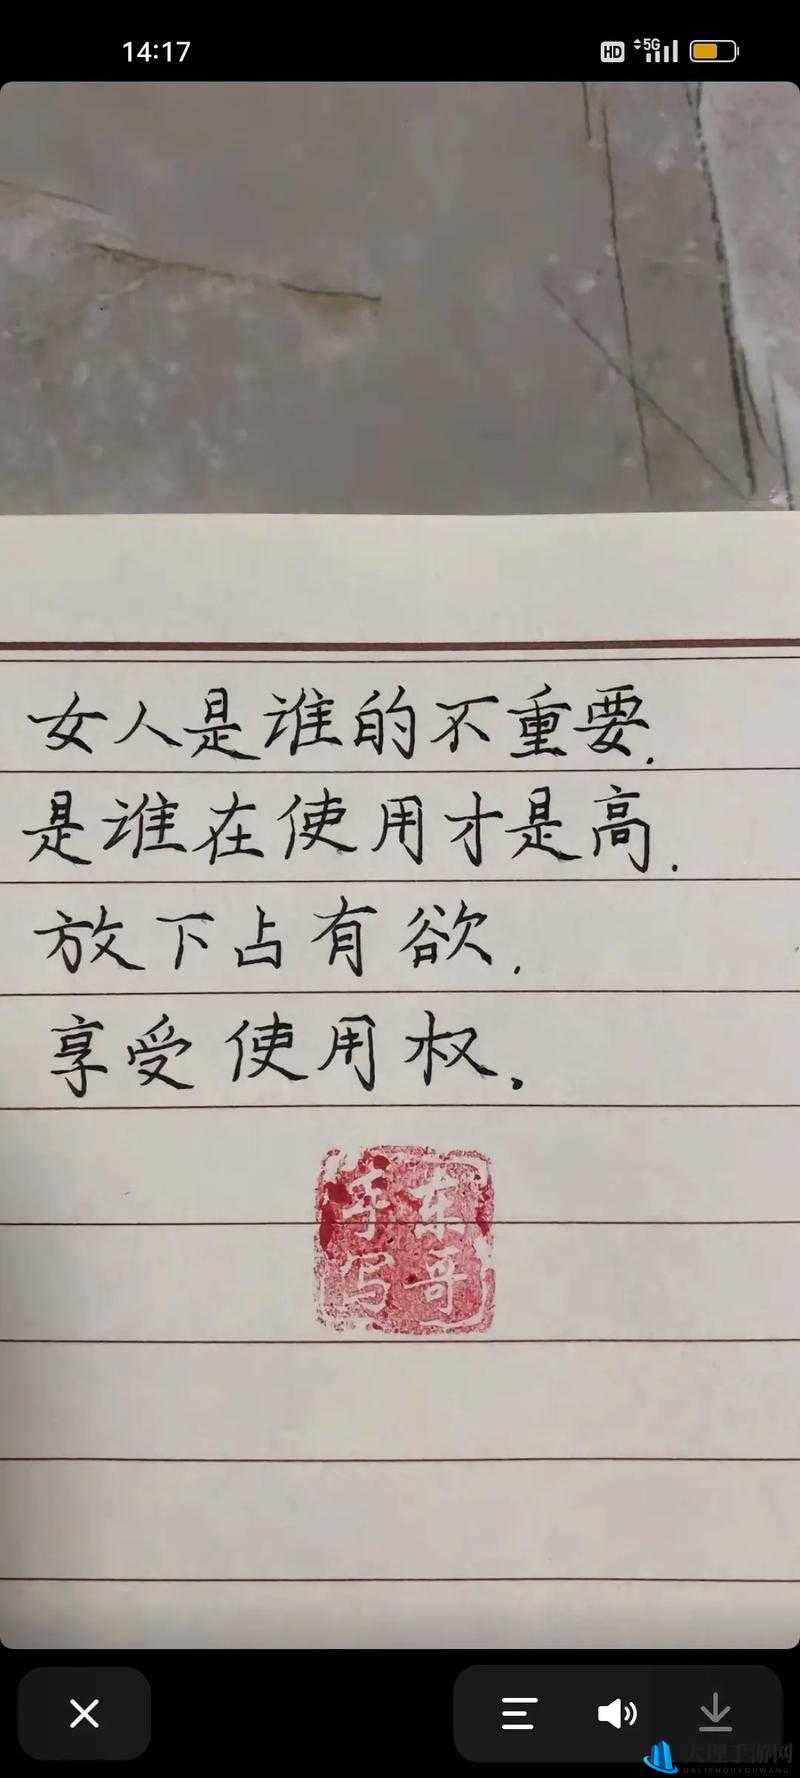 14:17
HD 5G
女人是谁的不重要.
是谁在使用才是高.
放下占有欲.
享受使用权.
东哥
手写
大理手游网
DALISHOUYOUWANG